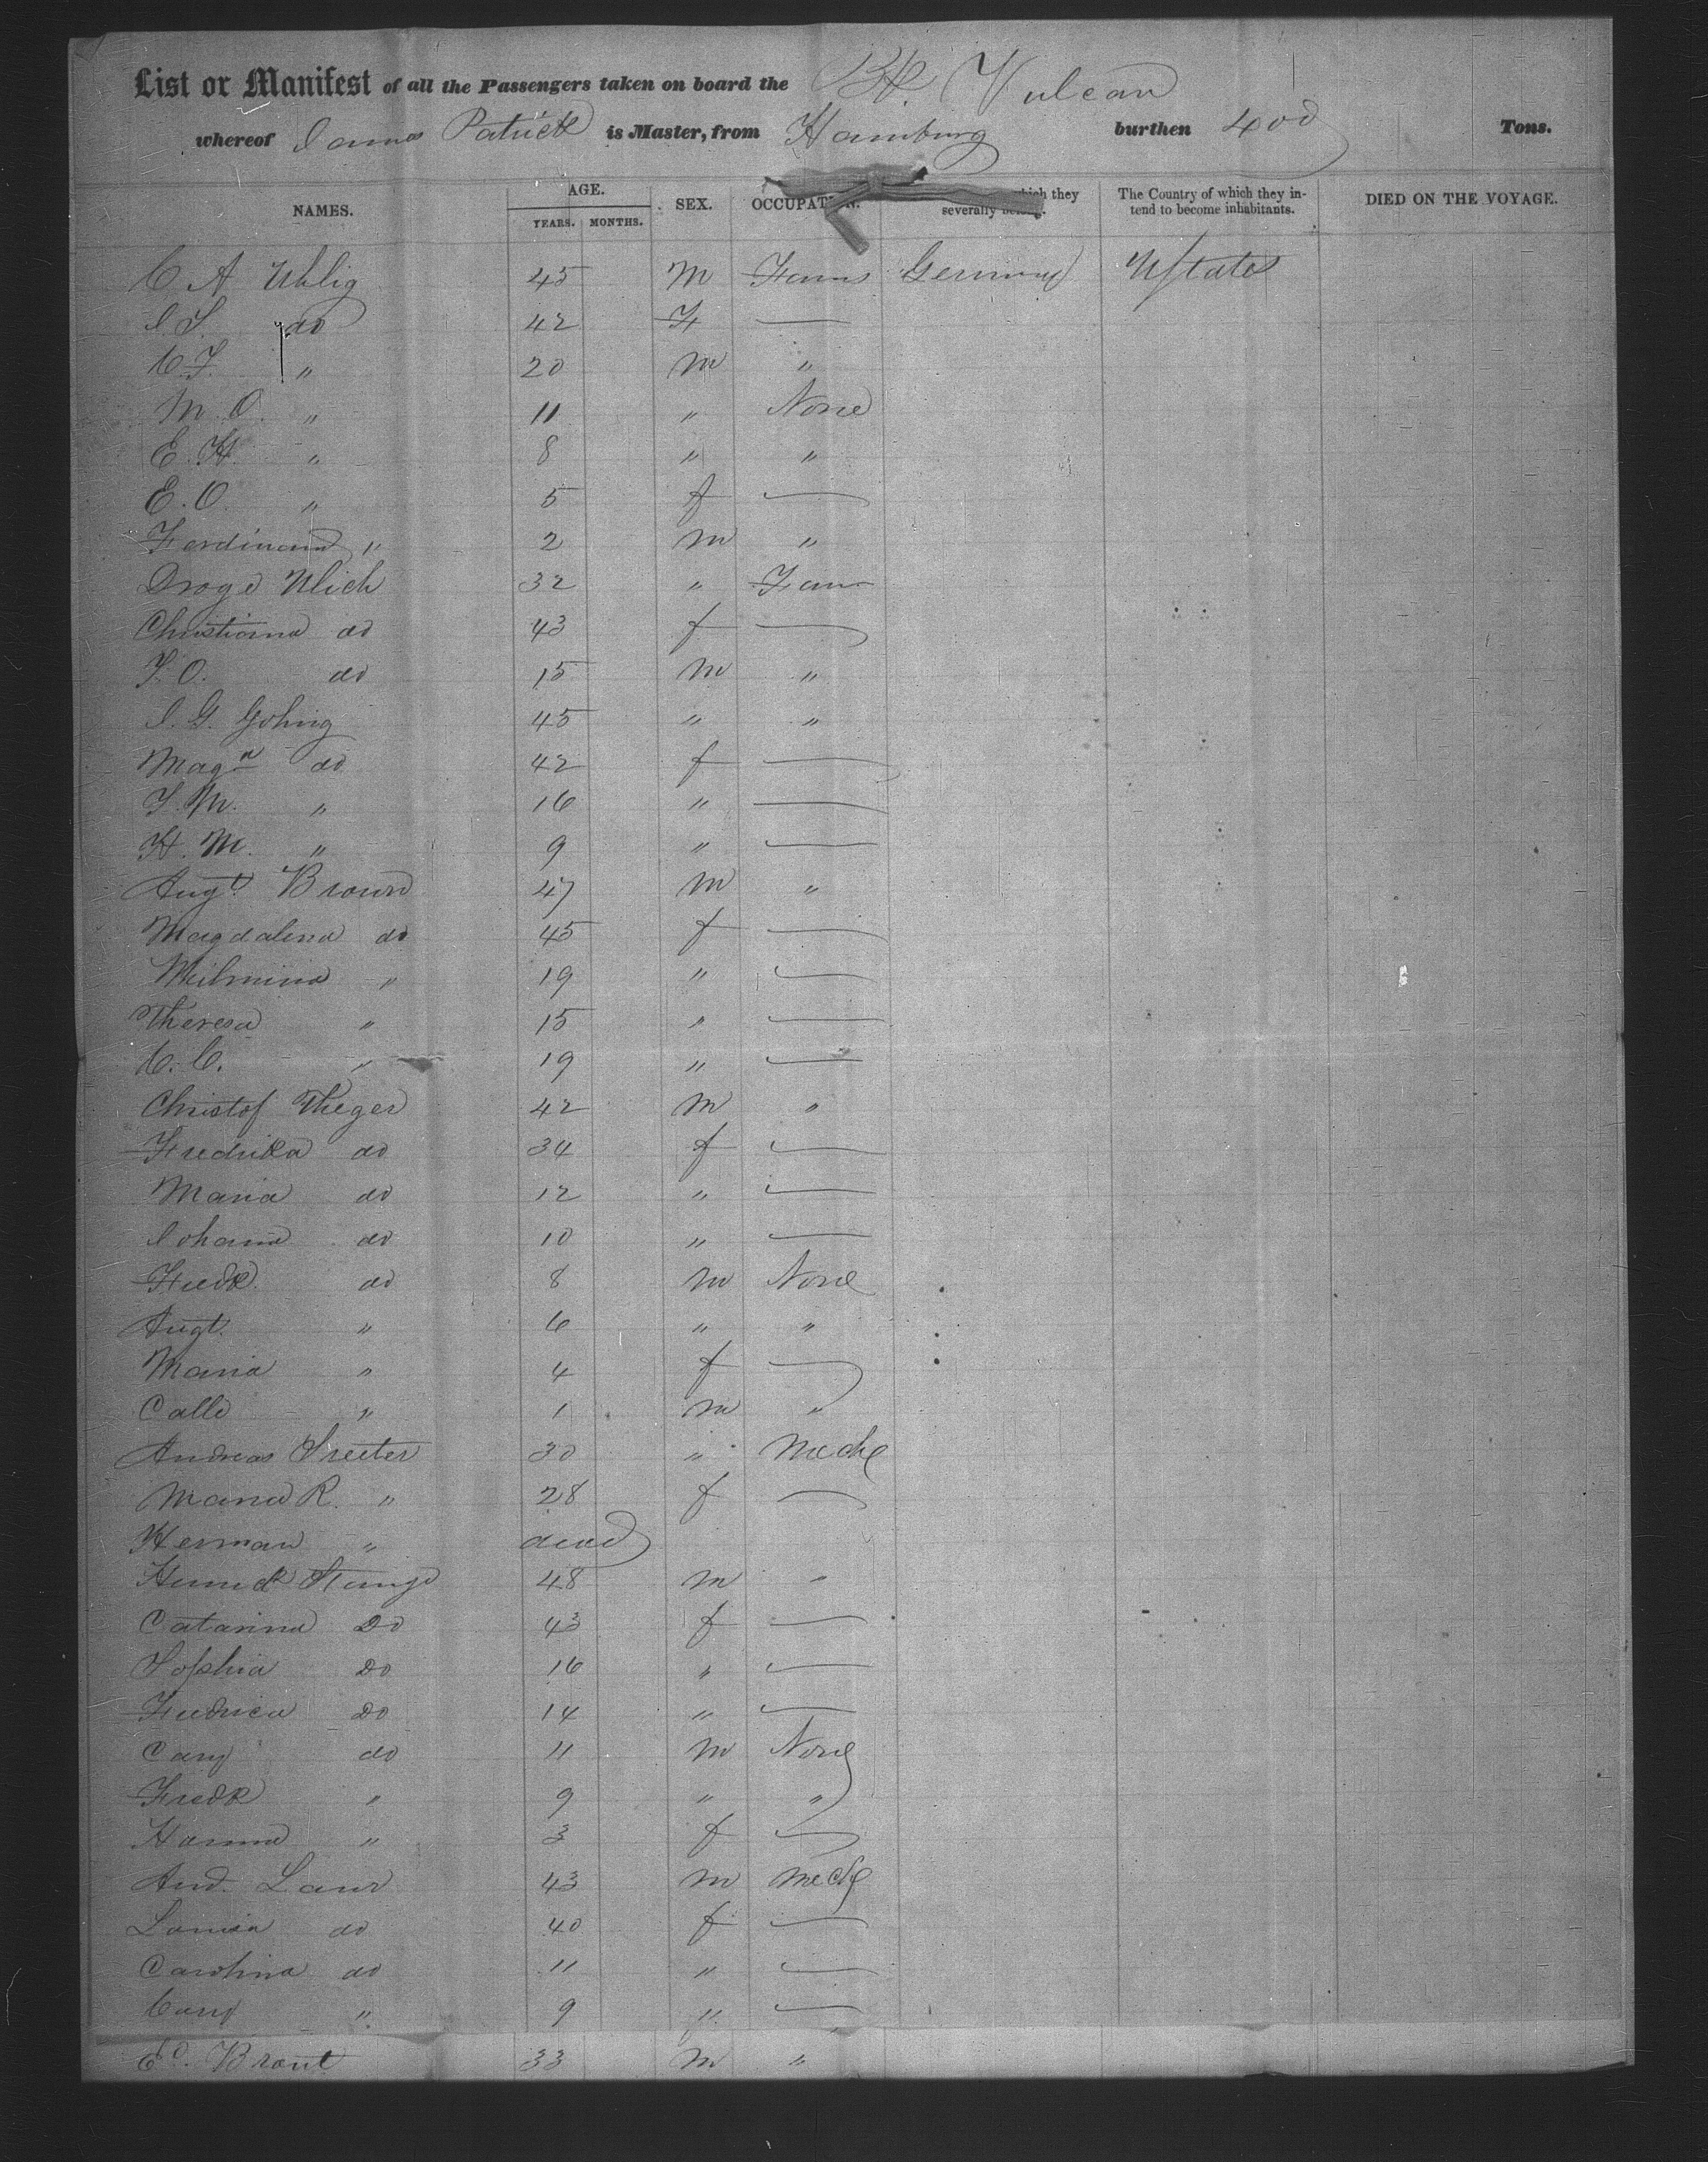 List or Manifest of all the Passengers taken on board the Bk. Vulcan
whereof James Patrick is Master, from Hamburg burthen 400 Tons.
NAMES. AGE. YEARS. MONTHS. SEX. OCCUPATION. which they severally belong. The Country of which they intend to become inhabitants. DIED ON THE VOYAGE.
C A Uhlig 45 M Farms Germany U States
I S. do 42 F —
C. F. " 20 m "
M. O. " 11 " None
E. H. " 8 " "
E. O. " 5 f —
Ferdinand " 2 m "
Droge Ulich 32 " Farm
Christiana do 43 f —
F. O. do 15 m "
I. G. Gohrig 45 " "
Magna do 42 f —
F. M. " 16 " —
H. M. " 9 " —
Augt. Brown 47 m "
Magdalena do 45 f —
Wilmina " 19 " —
Theresa " 15 " —
C. C. " 19 " —
Christof Theger 42 m "
Fredrika do 34 f —
Maria do 12 " —
Johana do 10 " —
Fredk. do 8 m None
Augt. " 6 " "
Maria " 4 f —
Calle " 1 m "
Andreas Sreeter 30 " Mech
Maria R. " 28 f —
Herman " dead
Stange 48 m "
Catarina Do 43 f —
Sophia Do 16 " —
Fredrica Do 14 " —
do 11 m None
Fredk " 9 " "
Hanna " 3 f —
And. Laur 43 m Mech
Louisa do 40 f —
Carolina do 11 " —
" 9 " —
Ed. Brant 33 m "